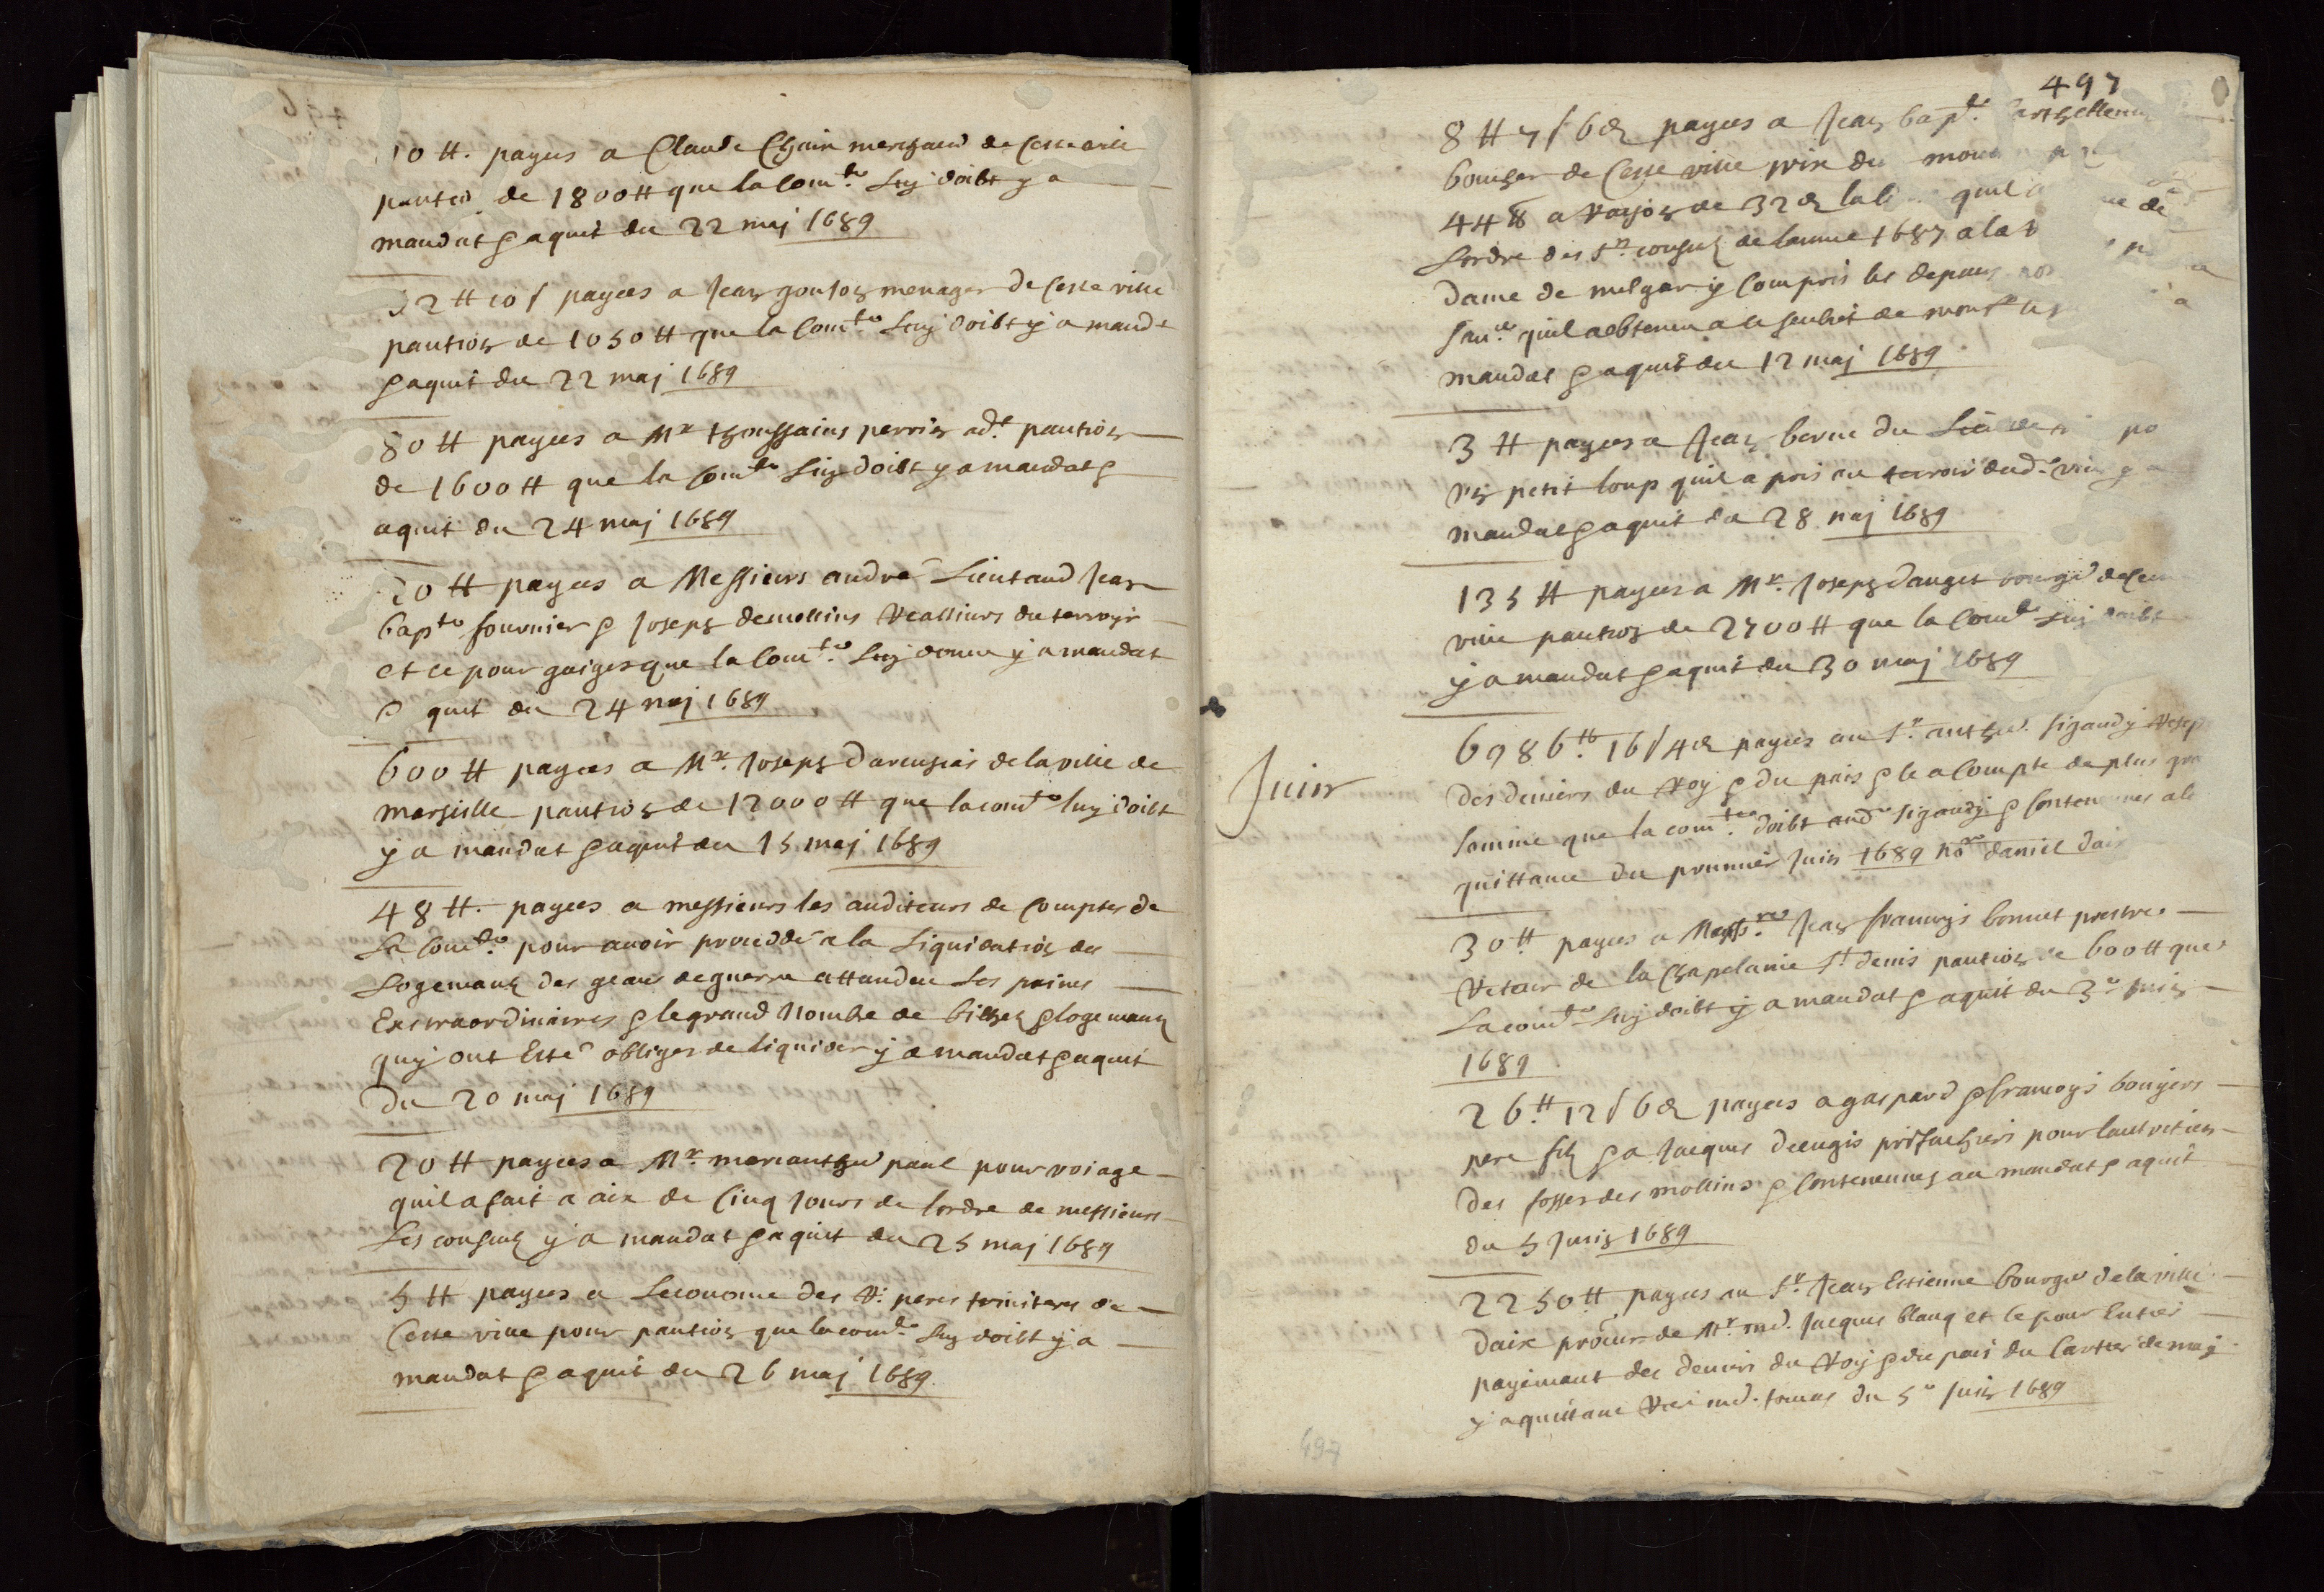 10 ₶. payees a Claude Chaix marchand de Cesse ville
pantion de 1800 ₶ que la Com.te Luy doibt y a
mandat & aquit du 22 maj 1689
52 ₶ 10 s payees a Jean gouion menager de Cesse ville
pantion de 1050 ₶ que la Com.te Luy doibt y a mand.t
& aquit du 22 maj 1689
80 ₶ payees a Mr thoussains perrin ad.t pantion
de 1600 ₶ que la Com.te Luy doibt y a mandat &
aquit du 24 maj 1689
20 ₶ payees a Messieurs andré Lieutaud Jean
bap.te fournier & Joseph desmollins
du terroir
et ce pour gaiges que la Com.te Luy donne y a mandat
& quit du 24 maj 1689
600 ₶ payees a Mr. Joseph de la ville de
marseille pantion de 12000 ₶ que la com.te luy doibt
y a mandat & aquit du 15 maj 1689
48 ₶. payees a messieurs les auditeurs de Comptes de
La Com.te pour avoir proceddé a la Liquidation des
Logemans des geans de guerre attandeu Les peines
Extraordinaires & le grand Nombre de bilhes & logemans
quy ont Esté obliges de liquider y a mandat & aquit
Du 20 maj 1689
20 ₶ payees a Mr. marc anth.e paul pour voiage
quil a fait a aix de Cinq Jours de Lordre de messieurs
Les consuls y a mandat & aquit du 25 maj 1689
5 ₶ payees a Leconome des R. peres trinitaires de
Cesse ville pour pantion que la com.te Luy doibt y a
mandat & aquit du 26 maj 1689
497
8 ₶ 7 s 6 d payees a Jean bap.te
bourges de Cesse ville prix du
448 a Rayon de 32 d la quil de
Lordre des Srs consuls de lannee 1687 a la
Dame de melgar y Compris les depans
quil a obtenu a
mandat & aquit du 12 maj 1689
3 ₶ payees a Jean berne du Lieu de
Vn petit loup quil a pris au terroir dud. y a
mandat & aquit du 28 maj 1689
135 ₶ payees a Mr. Joseph dauget
ville pantion de 2700 ₶ que la Com.te Luy doibt
y a mandat & aquit du 30 maj 1689
Juin
6986 ₶. 16 s 4 d payees au Sr. anth.e sigaudy
Des deniers du Roy & du pais & le a Compte de plus
somme que la com.te doibt aud sigaudy &
quittance du prumier Juin 1689 no.re daniel
30 ₶ payees a Mess.re Jean francoys bonnet prestre
Reteur de la Chapelanie St. denis pantion de 600 ₶ que
La com.te Luy doibt y a mandat & aquit du 3e Juin
1689
26 ₶. 12 s 6 d payees a gaspard & francoys bougiers
pere fils & a Jacques deengis prisfachiers pour
Des fosses des mollins & Contenennes au mandat & aquit
du 5 Juin 1689
2250 ₶. payees au Sr. Jean Estienne bourg.s de la ville
Daix procur. de Mr. Jacques blanq et ce pour Entier
payemant des deniers du Roy & du pais du Cartier de maj
y a quittance du 5e Juin 1689
497